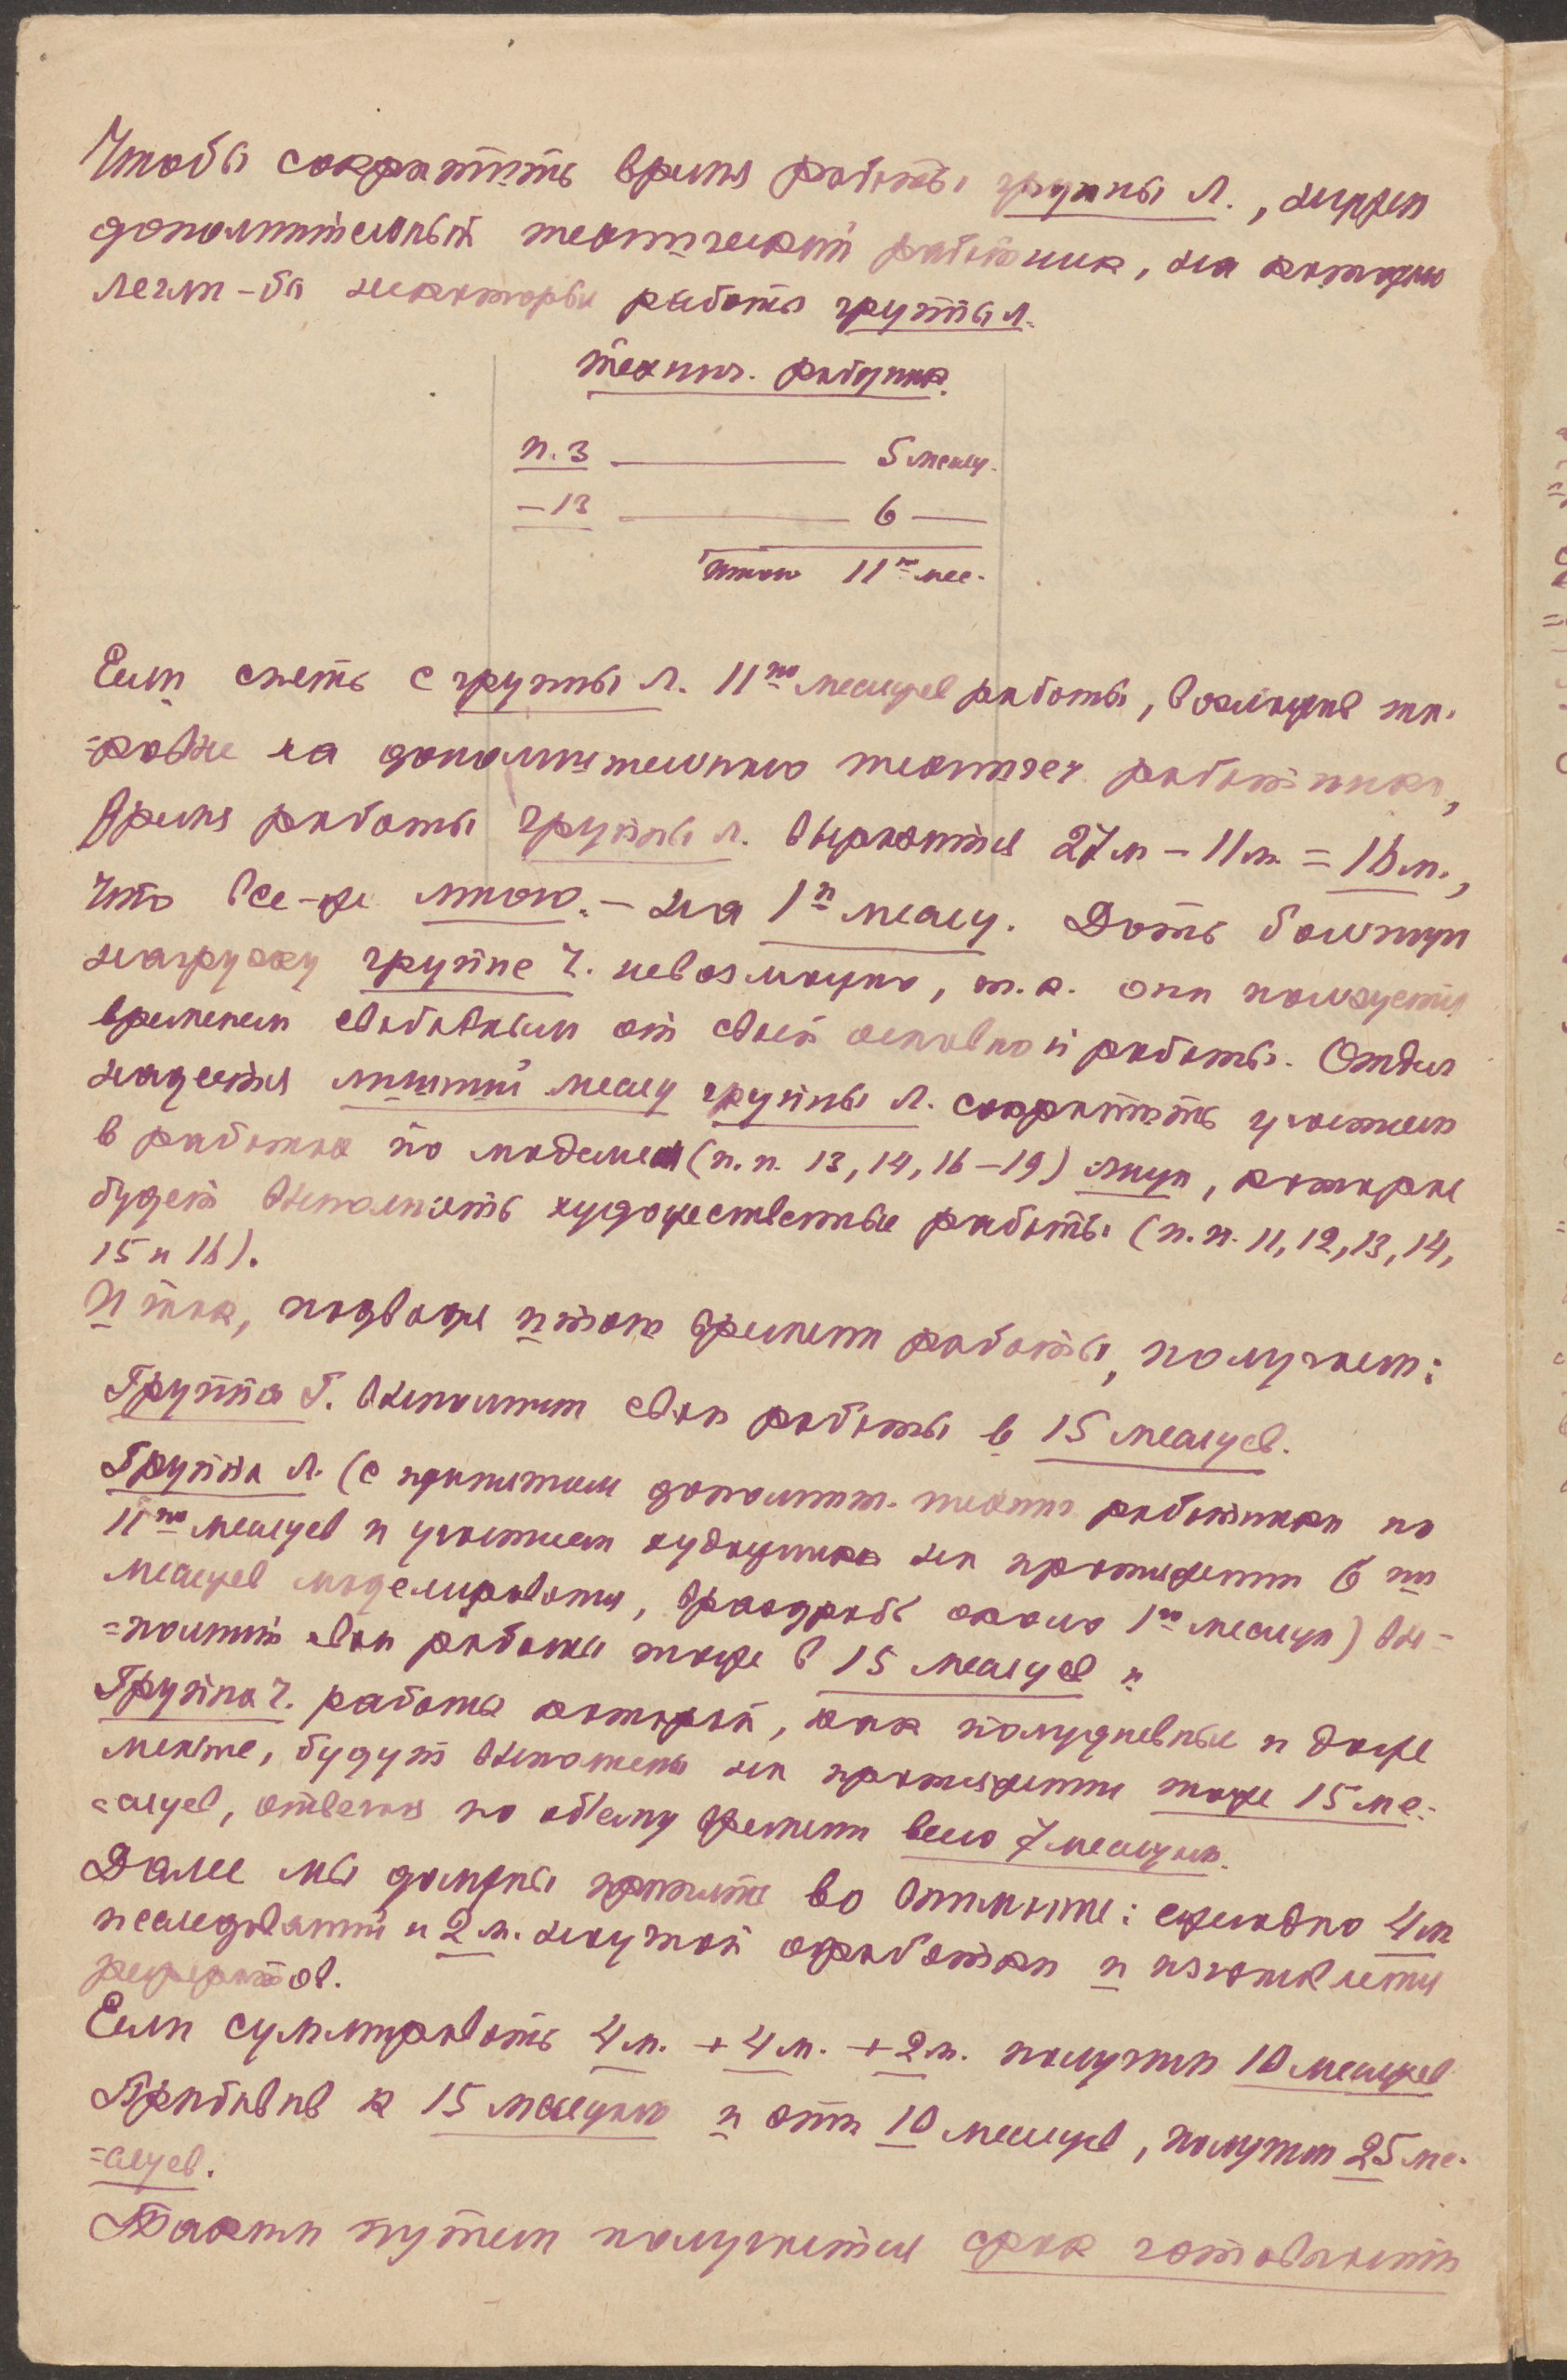 Чтобы сократить время работы группы Л., нужен
дополнительный технический работник, на которого
легли-бы некоторые работы группы Л.
технич. работник.
п. 3 — 5 месяц.
– 13 — 6 —
Итого 11 ти мес.
Если снять с группы Л. 11 ти месяцев работы, возложив та-
=ковые на дополнительного техническ. работника,
время работы группы Л. выразится 27 м – 11 м. = 16 м.,
что все-же много. – на 1 й месяц. Дать большую
нагрузку группе Ч. невозможно, т.к. она пользуется
временем свободным от своей основной работы. Отдел
надеется лишний месяц группы Л. сократить участием
в работах по моделям (п.п. 13, 14, 16–19) лица, которое
будет выполнять художественные работы (п.п. 11, 12, 13, 14,
15 и 16).
И так, подводя итог времени работы, получаем:
Группа Г. выполнит свои работы в 15 месяцев.
Группа Л. (с принятием дополнит. технич. работника по
11 ти месяцев и участием художника на протяжении 6 ти
месяцев моделирования, враздробь около 1 го месяца) вы-
=полнит свои работы тоже в 15 месяцев и
Группа Ч. работы которой, как полудневные и даже
меньше, будут выполнены на протяжении тоже 15 ме-
=сяцев, отвечая по объему времени всего 7 месяцам.
Далее мы должны принять во внимание: ежегодно 4 м
исследований и 2 м. научной обработки и изготовления
рефератов.
Если суммировать 4 м. + 4 м. + 2 м. получим 10 месяцев
Прибавив к 15 месяцам и эти 10 месяцев, получим 25 ме-
=сяцев.
Таким путем получается срок готовности